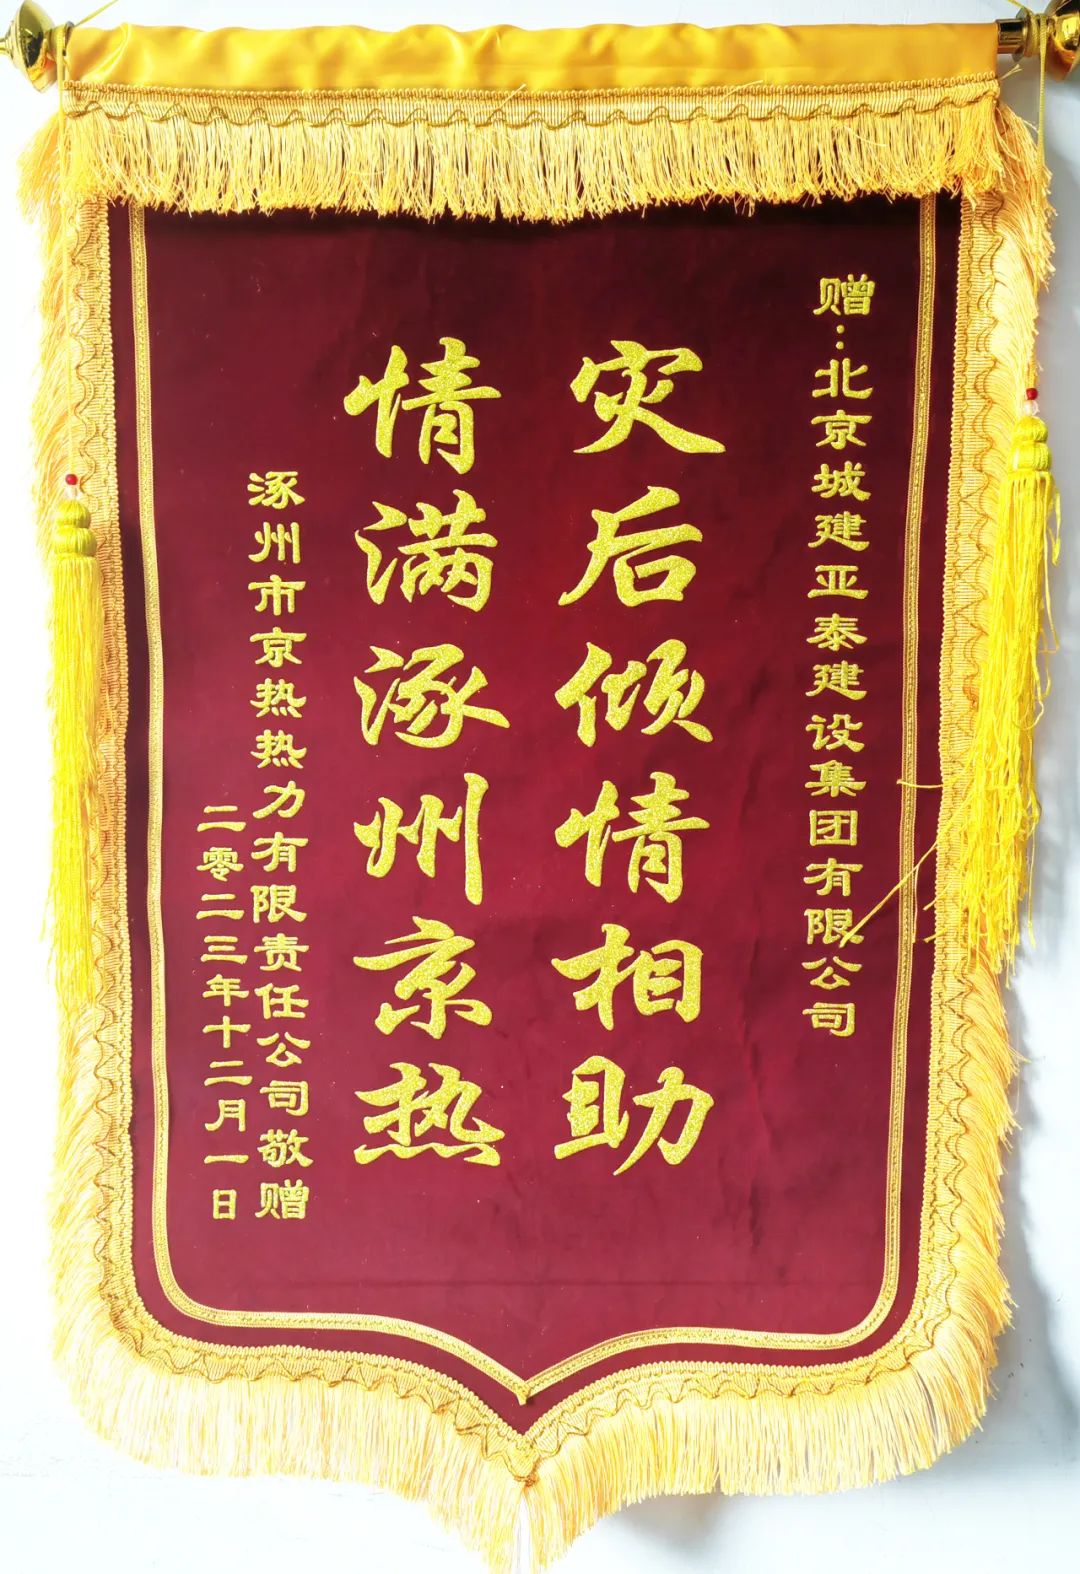 赠：北京城建亚泰建设集团有限公司
灾后倾情相助
情满涿州京热
涿州市京热热力有限责任公司敬赠
二零二三年十二月一日